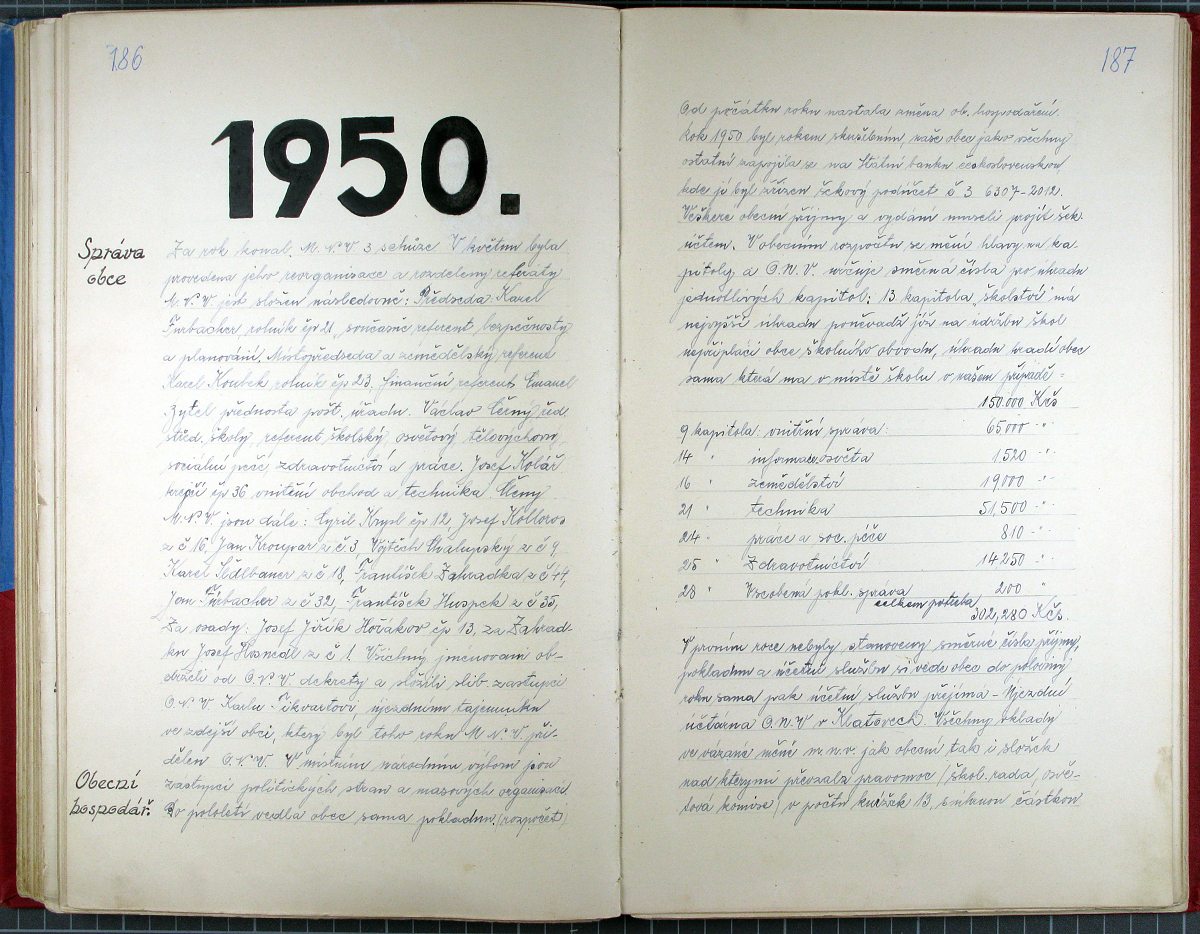 186
1950.
Správa
obce
Za rok konal M.N.V. 3 schůze V květnu byla
provedena jeho reorganisace a rozděleny referáty
M.N.V. jest složen následovně: Předseda: Karel
Fürbacher rolník čp 21, současně referent bezpečnosty
a plánování. Místopředseda a zemědělský referent
Karel Koubek rolník čp 23. finanční referent Emanel
Zytel přednosta pošt. úřadu. Václav Černý řed.
střed. školy, referent školský, osvětový tělovýchovy,
sociální péče, zdravotnictví a práce. Josef Kolář
krejčí čp 36 vnitřní obchod a technika. Členy
M.N.V. jsou dále: Cyril Krysl čp 12, Josef Kolloros
z č 16, Jan Kroupar z č. 3, Vojtěch Chalupský z č 9
Karel Sidlbauer z č 18, František Zahradka z č 44,
Jan Fürbacher z č 32, František Huspek z č 35,
Za osady: Josef Jiřík Hořákov čp 13, za Zahrad-
ku Josef Hosnedl z č 1. Všichny jmenovaní ob-
drželi od O.N.V. dekrety a složili slib zástupci
O.N.V. Karlu Tikvartovi, újezdnímu tajemníku
ve zdejší obci, který byl toho roku M.N.V. při-
dělen O.N.V. V místním národním výboru jsou
zástupci politických stran a masových organisací
Obecní
hospodář.
Do pololetí vedla obec sama pokladnu. (rozpočet)
187
Od počátku roku nastala změna ob. hospodaření.
Rok 1950 byl rokem zkušebním, naše obec jako všechny
ostatní zapojila se na Státní banku československou,
kde jí byl zřízen šekový podúčet č 3 6307-2012.
Veškeré obecní příjmy a vydání museli projít šek.
účtem. V obecním rozpočtu se mění hlavy na ka-
pitoly a O.N.V. určuje směrná čísla pro úhradu
jednotlivých kapitol: 13. kapitola "školství" má
nejvyšší úhradu poněvadž již na údržbu škol
nepřiplácí obce školního obvodu, úhradu hradí obec
sama která má v místě školu v našem případě -
150.000 Kčs
9 kapitola: vnitřní správa: 65000 -"-
14 " informace, osvěta 1.520 -"-
16 " zemědělství 19000 -"-
21 " technika 51,500 -"-
24 " práce a soc. péče 810 -"-
25 " Zdravotnictví 14250 -"-
28 " Všeobená pokl. správa 200 "
celkem potřeba
302,280 Kčs.
V prvním roce nebyly stanoveny směrné čísla příjmy,
pokladnu a účetní službu si vede obec do poloviny
roku sama pak účetní službu přejímá - Újezdní
účtárna O.N.V v Klatovech. Všechny vklady
ve vázané měně m.n.v. jak obecní tak i složek
nad kterými převzala pravomoc (škol. rada, osvě-
tová komise) v počtu knížek 13, s úhrnou částkou